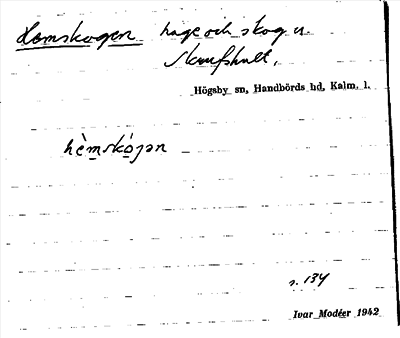 Hemskogen hage och skog u.
Skruvshult,
Högsby sn, Handbörds hd, Kalm. l.
hèmskógən
s. 134
Ivar Modéer 1942